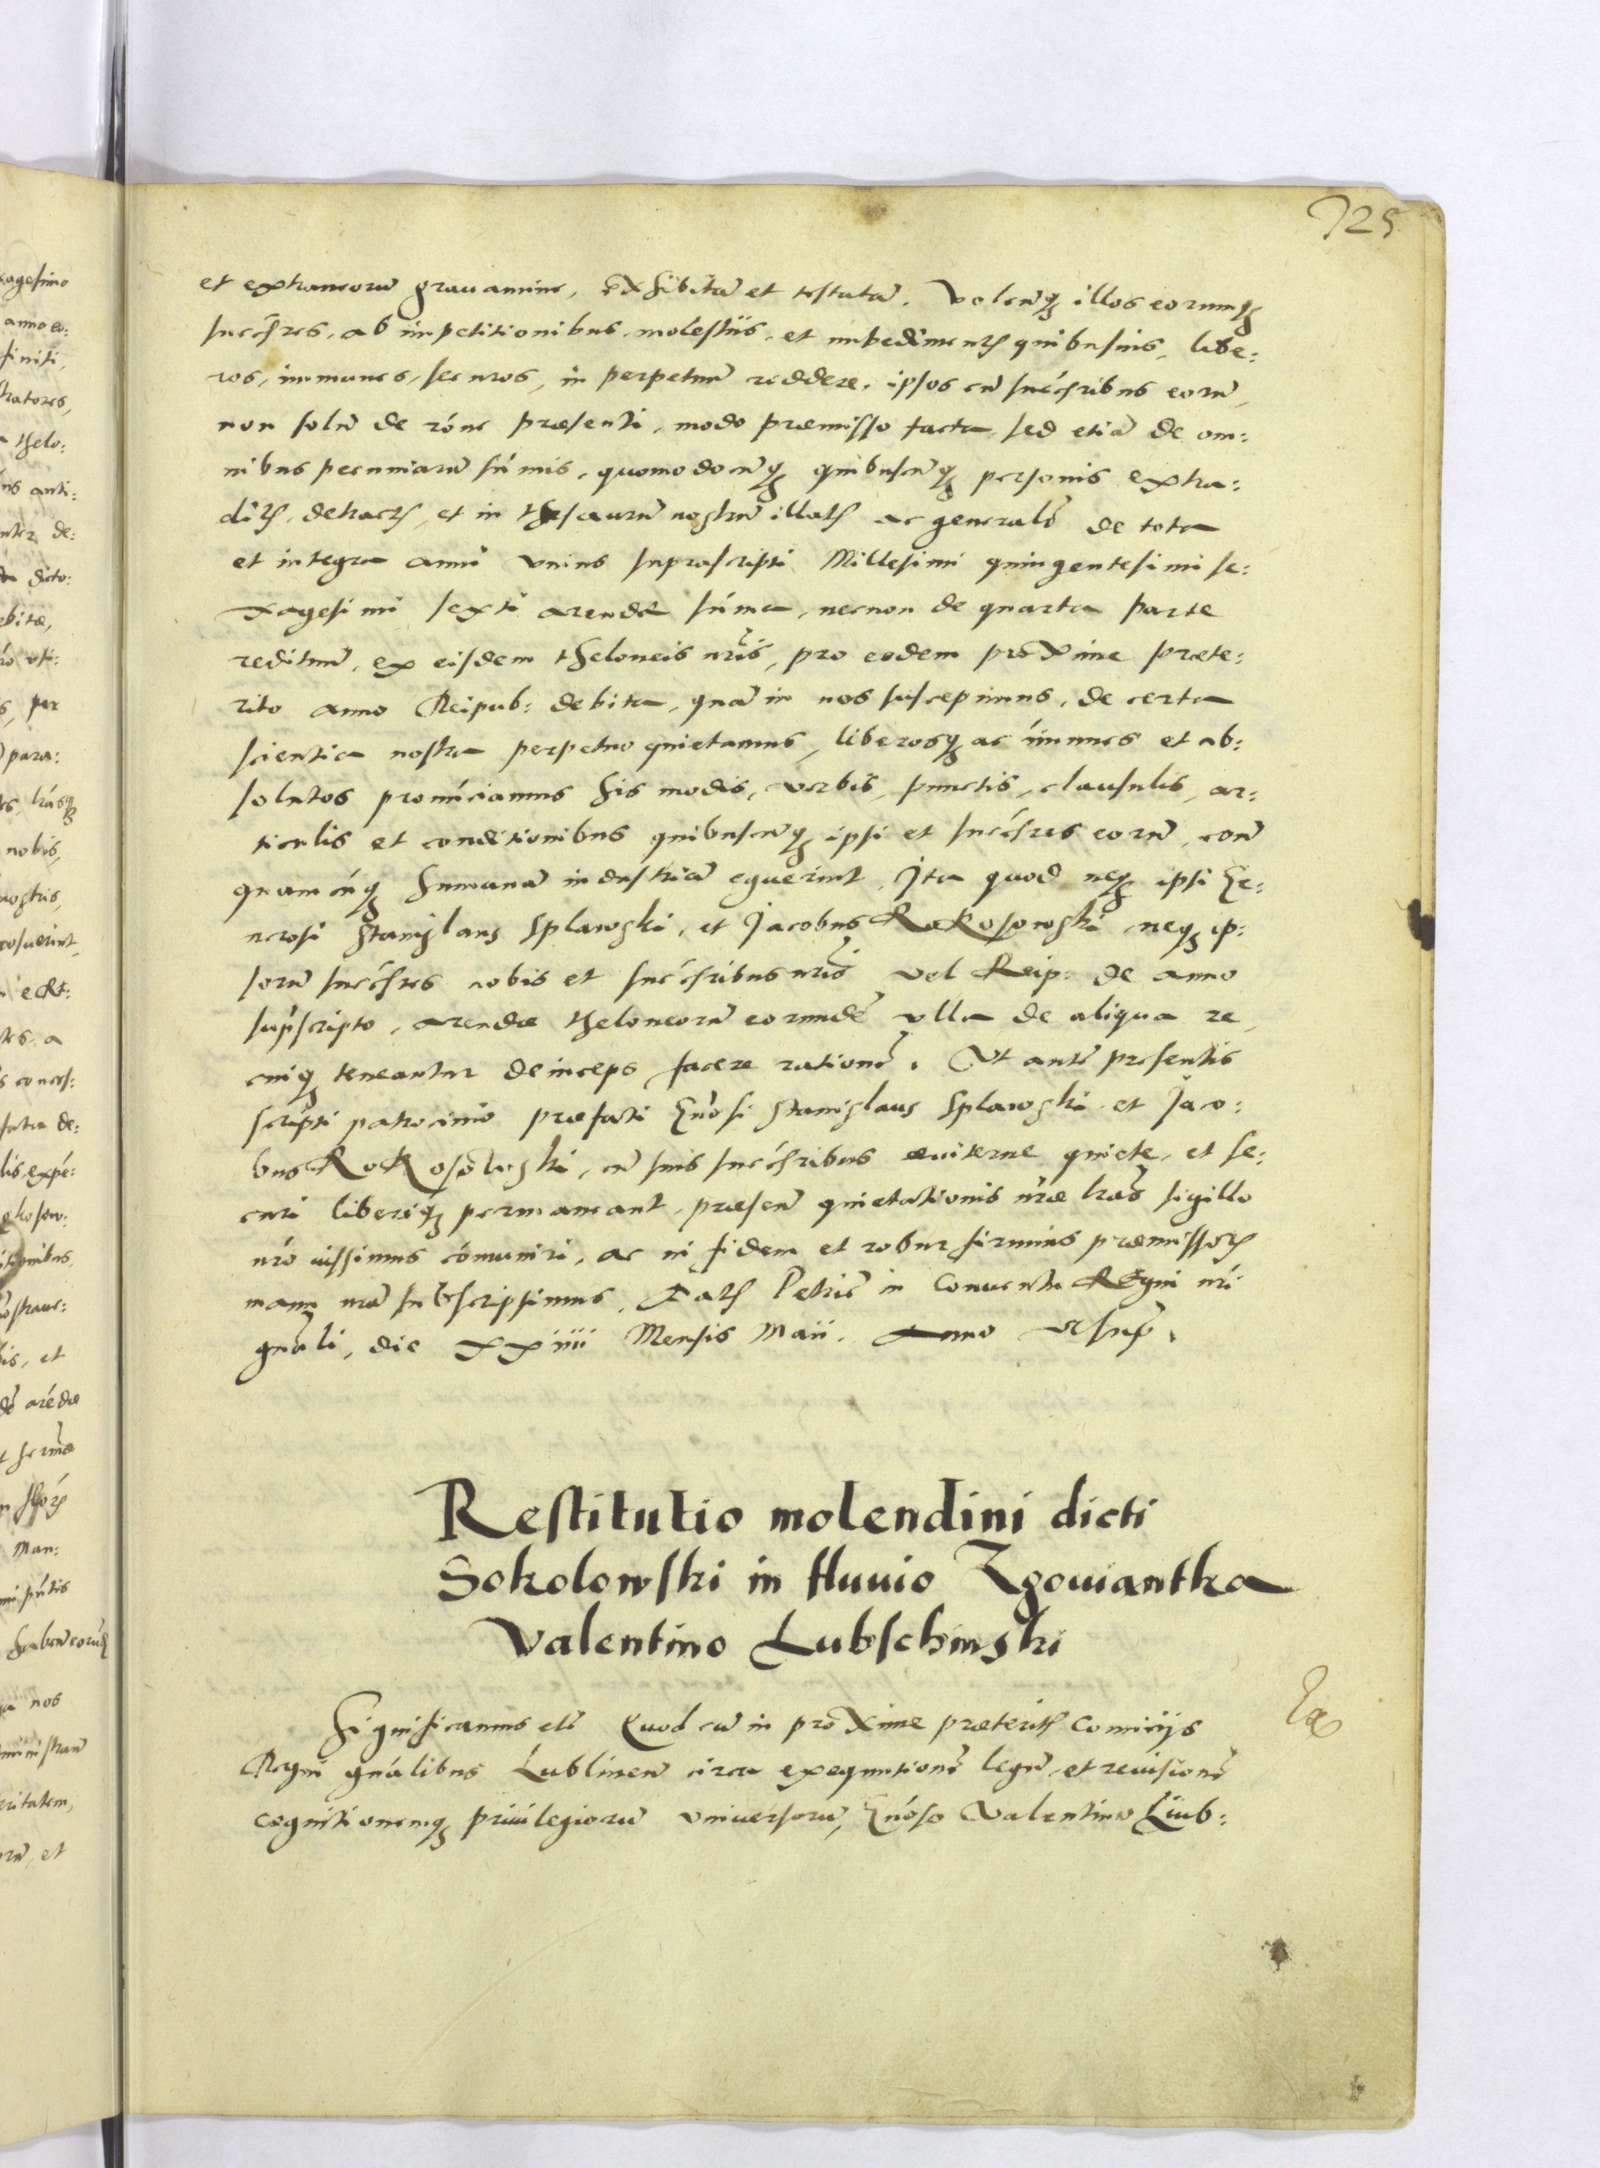 725
et extraneorum gravamine, exhibitam et testatam. Volentesq illos eorumq
succres, ab impetitionibus, molestiis, et impedimentis quibusuis, libe:
ros, immunes, securos, in perpetuum reddere, ipsos cum succribus eorum,
non solum de rone praesenti, modo praemisso facta, sed etiam de om:
nibus pecuniarum summis, quomodocunq quibuscunq personis extra:
ditis, detractis, et in thesaurum nostrum illatis ac generali de tota
et integra anni vnius suprascripti Millesimi quingentesimi se:
xagesimi sexti arendae summa, necnon de quarta parte
redituum, ex eisdem theloneis nris, pro eodem proxime praete:
rito anno Reipub: debita, quam in nos suscepimus, de certa
scientia nostra perpetuo quietamus, liberosq ac immunes et ab:
solutos pronunciamus his modis, verbis, punctis, clausulis, ar:
ticulis et conditionibus quibuscunq ipsi et succres eorum, contra
quamcunq humanam industriam eguerint, Ita quod neq ipsi Ge:
nerosi Stanislaus Splawski, et Jacobus Rokosowski neq ip:
sorum succres nobis et succribus nris vel Reip: de anno
suprscripto, arendae theloneorum eorundem vlla de aliqua re
cuiq teneantur deinceps facere rationem. Vt autem presentis
scripti patrocinio praefati Gnosi Stanislaus Splawski et Jaco:
bus Rokosowski, cum suis succribus aeviterne quiete, et se:
curi liberiq permaneant, praesen quietationis nrae lras sigillo
nro iussimus comuniri, ac in fidem et robur firmius praemissorum
manu nra subscripsimus. Datis Petric in Conventu Regni nri
gnali, die xxiiii Mensis Maii. Anno vt sup.
Restitutio molendini dicti
Sokolowski in fluuio Zgouiantka
Valentino Lubschinski
Significamus etc Quod cum in proxime praeteritis Comicijs
Regni gnalibus Lublinen circa exequutionem legum, et reuisionem
cognitionemq priuilegiorum vniuersorum, Gnoso Valentino Liub: